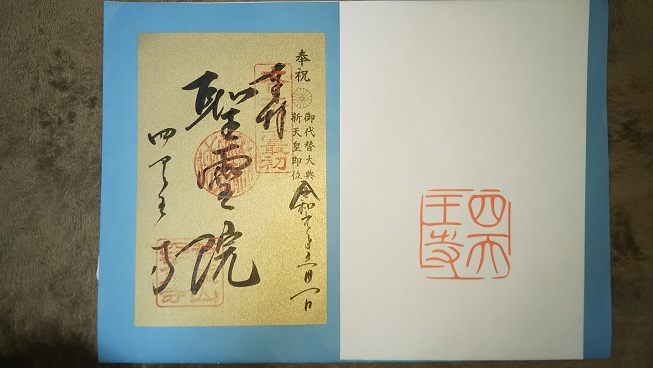 奉祝
御代替大典
新天皇即位
令和元年五月一日
奉拝
最初
聖霊院
四天王寺
四天王寺